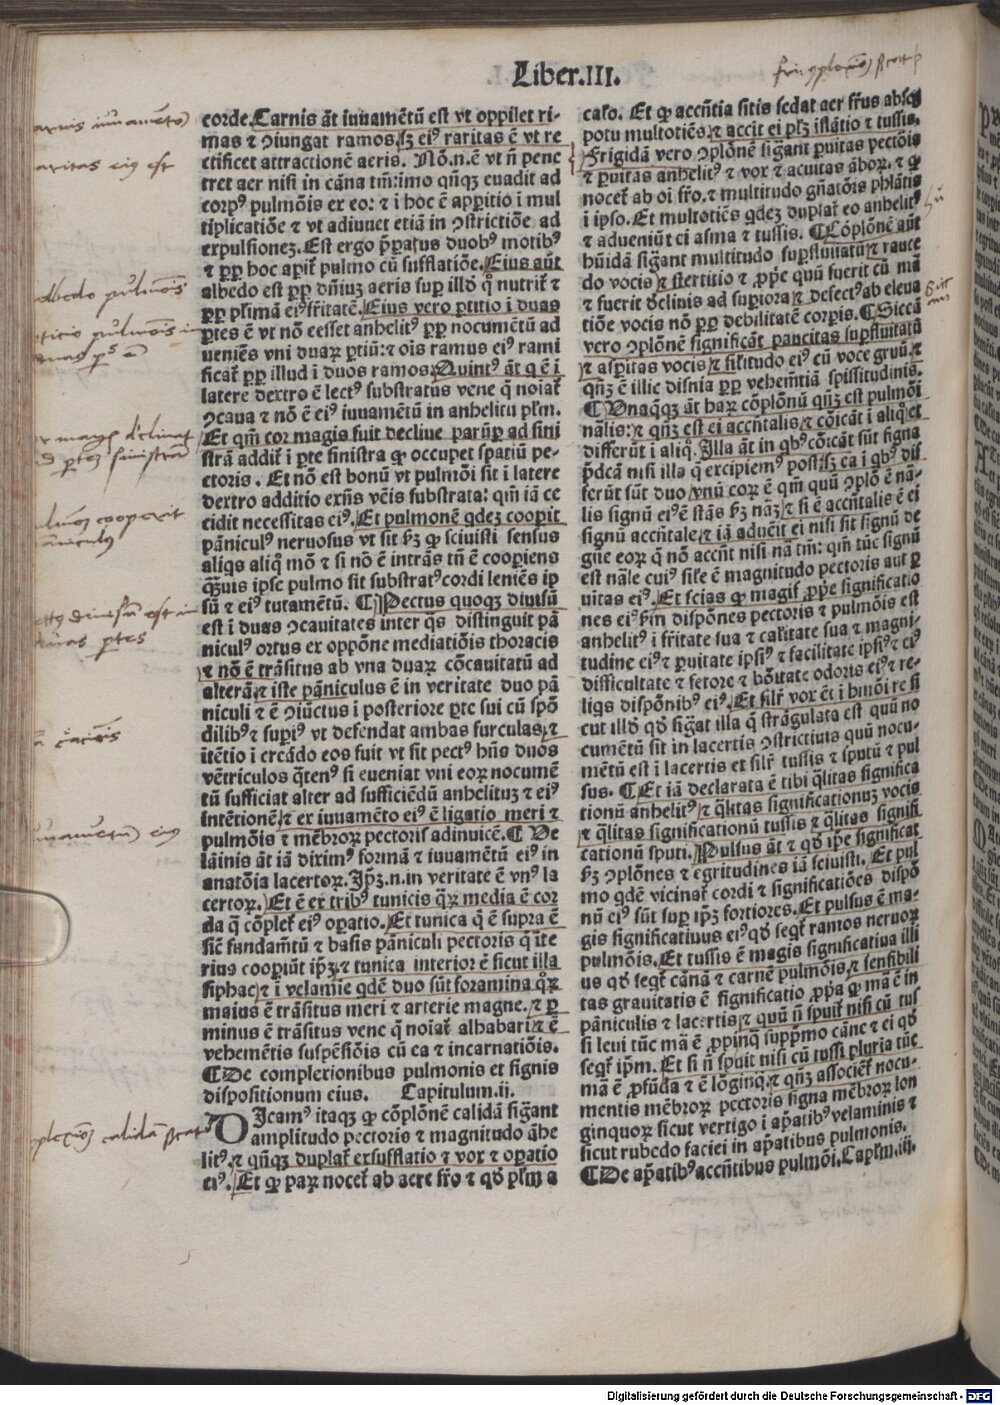 Liber.III.
corde. Carnis āt iuuamētū est vt oppilet ri-
mas ⁊ ꝯiungat ramos. sꝫ eiꝰ raritas ē vt re
ctificet attractionē aeris. Nō.n.ē vt ñ pene
tret aer nisi in cāna tm̄: imo qñqꝫ euadit ad
corpꝰ pulmōis ex eo: ⁊ i hoc ē apꝑitio i mul
tiplicatiōe ⁊ vt adiuuet etiā in ꝯstrictiōe ad
expulsionez. Est ergo p̄paratus duobꝰ motibꝰ
⁊ ꝓp hoc aꝑit̄ pulmo cū sufflatiōe. Eius aūt
albedo est ꝓp dn̄iuꝫ aeris sup illd̄ qͦ nutrit̄ ⁊
ꝓp pl̄imā eiꝰ fr̄itatē. Eius vero ꝑtitio i duas
ꝑtes ē vt nō cesset anhelitꝰ ꝓp nocumētū ad
ueniēs vni duaꝝ ꝑtiū: ⁊ oīs ramus eiꝰ rami
ficat̄ ꝓp illud i duos ramos. Quintꝰ āt q̄ ē i
latere dextro ē lectꝰ substratus vene q̄ noīat̄
ꝯcaua ⁊ nō ē eiꝰ iuuamētū in anhelitu pl̄m.
Et qm̄ cor magis fuit decliue parūꝑ ad sini
strā addit̄ i ꝑte sinistra qͥ occupet spatiū pe-
ctoris. Et nō est bonū vt pulmōi sit i latere
dextro additio exn̄s vēis substrata: qm̄ iā ce
cidit necessitas eiꝰ. Et pulmonē qdeꝫ cooꝑit
pāniculꝰ neruosus vt sit ẜꝫ qͥ sciuisti sensus
aliqs aliqͦ mō ⁊ si nō ē intrās tn̄ ē cooꝑiens
qꝫuis ipse pulmo sit substratꝰ cordi leniēs ip
sū ⁊ eiꝰ tutamētū. ¶ Pectus quoqꝫ diuisū
est i duas ꝯcauitates inter qs distinguit pā
niculꝰ ortus ex oppōne mediatiōis thoracis
⁊ nō ē trāsitus ab vna duaꝝ cōcauitatū ad
alterā ⁊ iste pāniculus ē in veritate duo pā
niculi ⁊ ē ꝯiūctus i posteriore ꝑte sui cū spō
dilibꝰ ⁊ supiꝰ vt defendat ambas furculas. ⁊
itētio i creādo eos fuit vt sit pectꝰ hn̄s duos
vētriculos q̄tenꝰ si eueniat vni eoꝝ nocumē
tū sufficiat alter ad sufficiēdū anhelituꝫ ⁊ eiꝰ
intētionē ⁊ ex iuuamēto eiꝰ ē ligatio meri ⁊
pulmōis ⁊ mēbroꝝ pectoris adinuicē. ¶ De
lāinis āt iā diximꝰ formā ⁊ iuuamētū eiꝰ in
anatōia lacertoꝝ. Ip̄ꝫ.n.in veritate ē vnꝰ la
certoꝝ. Et ē ex tribꝰ tunicis q̄ꝝ media ē cor
da q̄ cōplet̄ eiꝰ oꝑatio. Et tunica q̄ ē supra ē
sic̄ fundam̄tū ⁊ basis pāniculi pectoris q̄ īte
rius cooꝑiūt ip̄ꝫ. ⁊ tunica interior ē sicut illa
siphac ⁊ i velamīe qdē duo sūt foramina q̄ꝝ
maius ē trāsitus meri ⁊ arterie magne. ⁊ ꝑ
minus ē trāsitus vene q̄ noīat̄ alhabari ⁊ ē
vehemētis suspēsiōis cū ea ⁊ incarnatiōis.
¶ De complexionibus pulmonis et signis
dispositionum eius. Capitulum.ii.
DIcamꝰ itaqꝫ qͥ cōplōnē calidā sig̅ant
amplitudo pectoris ⁊ magnitudo āhe
litꝰ. ⁊ qñqꝫ duplat̄ exsufflatio ⁊ vox ⁊ oꝑatio
eiꝰ. Et qͥ paꝝ nocet̄ ab aere fr̄o ⁊ qd̄ pl̄m a
calo. Et qͥ accn̄tia sitis sedat aer fr̄us absqꝫ
potu multotiēs ⁊ accit ei pl̄ꝫ iflatio ⁊ tussis.
Frigidā vero ꝯplōnē sig̅ant ꝑuitas pectōis
⁊ ꝑuitas anhelitꝰ ⁊ vox ⁊ acuitas āboꝝ. ⁊ qͥ
nocet̄ ab oī fr̄o. ⁊ multitudo gn̄atōis phlātis
i ipso. Et multotiēs qdeꝫ duplat̄ eo anhelitꝰ
⁊ adueniūt ei asma ⁊ tussis. ¶ Cōplōnē aūt
hūidā sig̅ant multitudo suꝑfluitatū ⁊ rauce
do vocis ⁊ stertitio ⁊ ꝓpe quū fuerit cū mā
⁊ fuerit d̄clinis ad supiora ⁊ defectꝰ ab eleua
tiōe vocis nō ꝓp debilitatē corpis. ¶ Siccā
vero ꝯplōnē significāt paucitas suꝑfluitatū
⁊ asꝑitas vocis ⁊ sil̄itudo eiꝰ cū voce gruū. ⁊
qñꝫ ē illic disnia ꝓp vehem̄tiā spissitudinis.
¶ Vnaqꝫqꝫ āt haꝝ cōplōnū qñꝫ est pulmōi
nālis: ⁊ qñꝫ est ei accn̄talis ⁊ cōicāt i aliqͦ et
differūt i aliqͦ. Illa āt in qbꝰ cōicāt sūt signa
p̄dcā nisi illa q̄ excipiemꝰ post: sꝫ ea i qbꝰ dif
ferūt sūt duo vnū coꝝ ē qm̄ quū ꝯplō ē nā-
lis signū eiꝰ ē stās ẜꝫ naꝫ ⁊ si ē accn̄talis ē ei
signū accn̄tale ⁊ iā aduēit ei nisi sit signū de
gn̄e eoꝝ q̄ nō accn̄t nisi nā tm̄: qm̄ tūc signū
est nāle cuiꝰ sil̄e ē magnitudo pectoris aut ꝑ
uitas eiꝰ. Et scias qͥ magiſ ꝓpe significatio
nes eiꝰ ẜm dispōnes pectoris ⁊ pulmōis est
anhelitꝰ i fr̄itate sua ⁊ cal̄itate sua ⁊ magni-
tudine eiꝰ ⁊ ꝑuitate ipsiꝰ ⁊ facilitate ipsiꝰ ⁊ eiꝰ
difficultate ⁊ fetore ⁊ bōitate odoris eiꝰ ⁊ re-
liqs dispōnibꝰ eiꝰ. Et sil̄r vox ēt i hm̄oi re si
cut illd̄ qd̄ sig̅at illa q̄ strāgulata est quū no
cumētū sit in lacertis ꝯstrictiuis quū nocu-
mētū est i lacertis et sil̄r tussis ⁊ sputū ⁊ pul
sus. ¶ Et iā declarata ē tibi q̄litas significa
tionū anhelitꝰ ⁊ q̄litas significationuꝫ vocis
⁊ q̄litas significationū tussis ⁊ q̄litas signifi
cationū sputi. Pulsus āt ⁊ qd̄ ip̄e significat
ẜꝫ ꝯplōnes ⁊ egritudines iā sciuisti. Et pul
mo qdē vicinat̄ cordi ⁊ significatiōes dispō
nū eiꝰ sūt sup ip̄ꝫ fortiores. Et pulsus ē ma-
gis significatiuus eiꝰ qd̄ seqt̄ ramos neruoꝝ
pulmōis. Et tussis ē magis significatiua illi
us qd̄ seqt̄ cānā ⁊ carnē pulmōis. ⁊ sensibili
tas grauitatis ē significatio ꝓpa qͥ mā ē in
pāniculis ⁊ lacertis. ⁊ quū ñ spuit̄ nisi cū tus
si leui tūc mā ē ꝓpinq̄ suppmo cāne ⁊ ei qd̄
seqt̄ ip̄m. Et si ñ spuit nisi cū tussi pluria tūc
mā ē ꝓfūda ⁊ ē lōginq̄. ⁊ qñꝫ associet̄ nocu-
mentis mēbroꝝ pectoris signa mēbroꝝ lon
ginquoꝝ sicut vertigo i ap̄atibꝰ velaminis ⁊
sicut rubedo faciei in ap̄atibus pulmonis.
¶ De ap̄atibꝰ accn̄tibus pulmōi. Cap̄lm.iii.
Digitalisierung gefördert durch die Deutsche Forschungsgemeinschaft - DFG